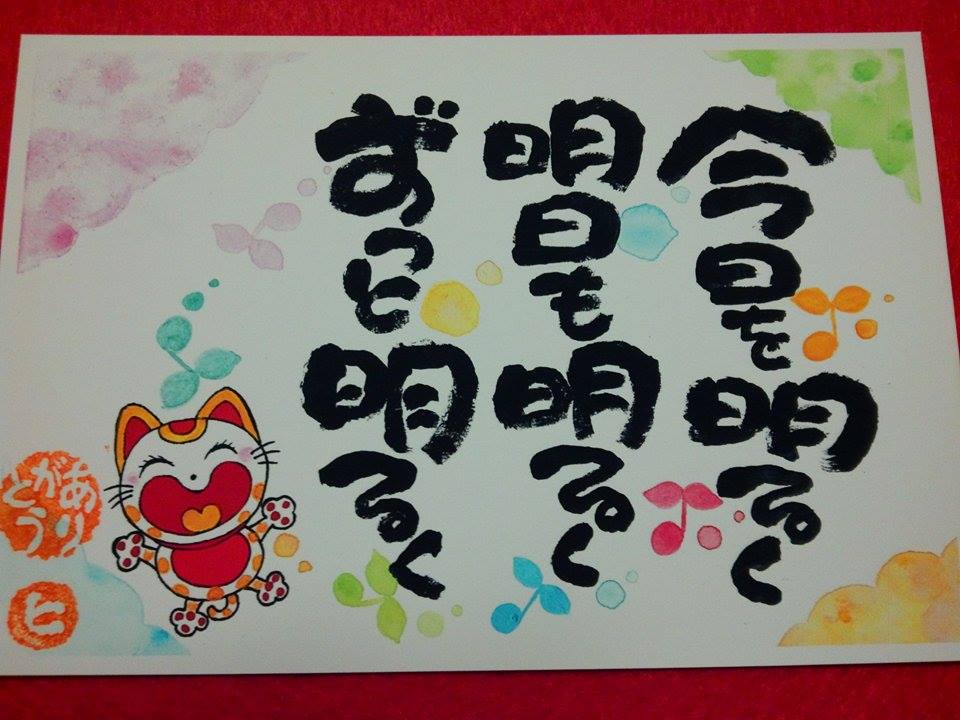 今日を明るく
明日も明るく
ずっと明るく
ありがとう
ヒ